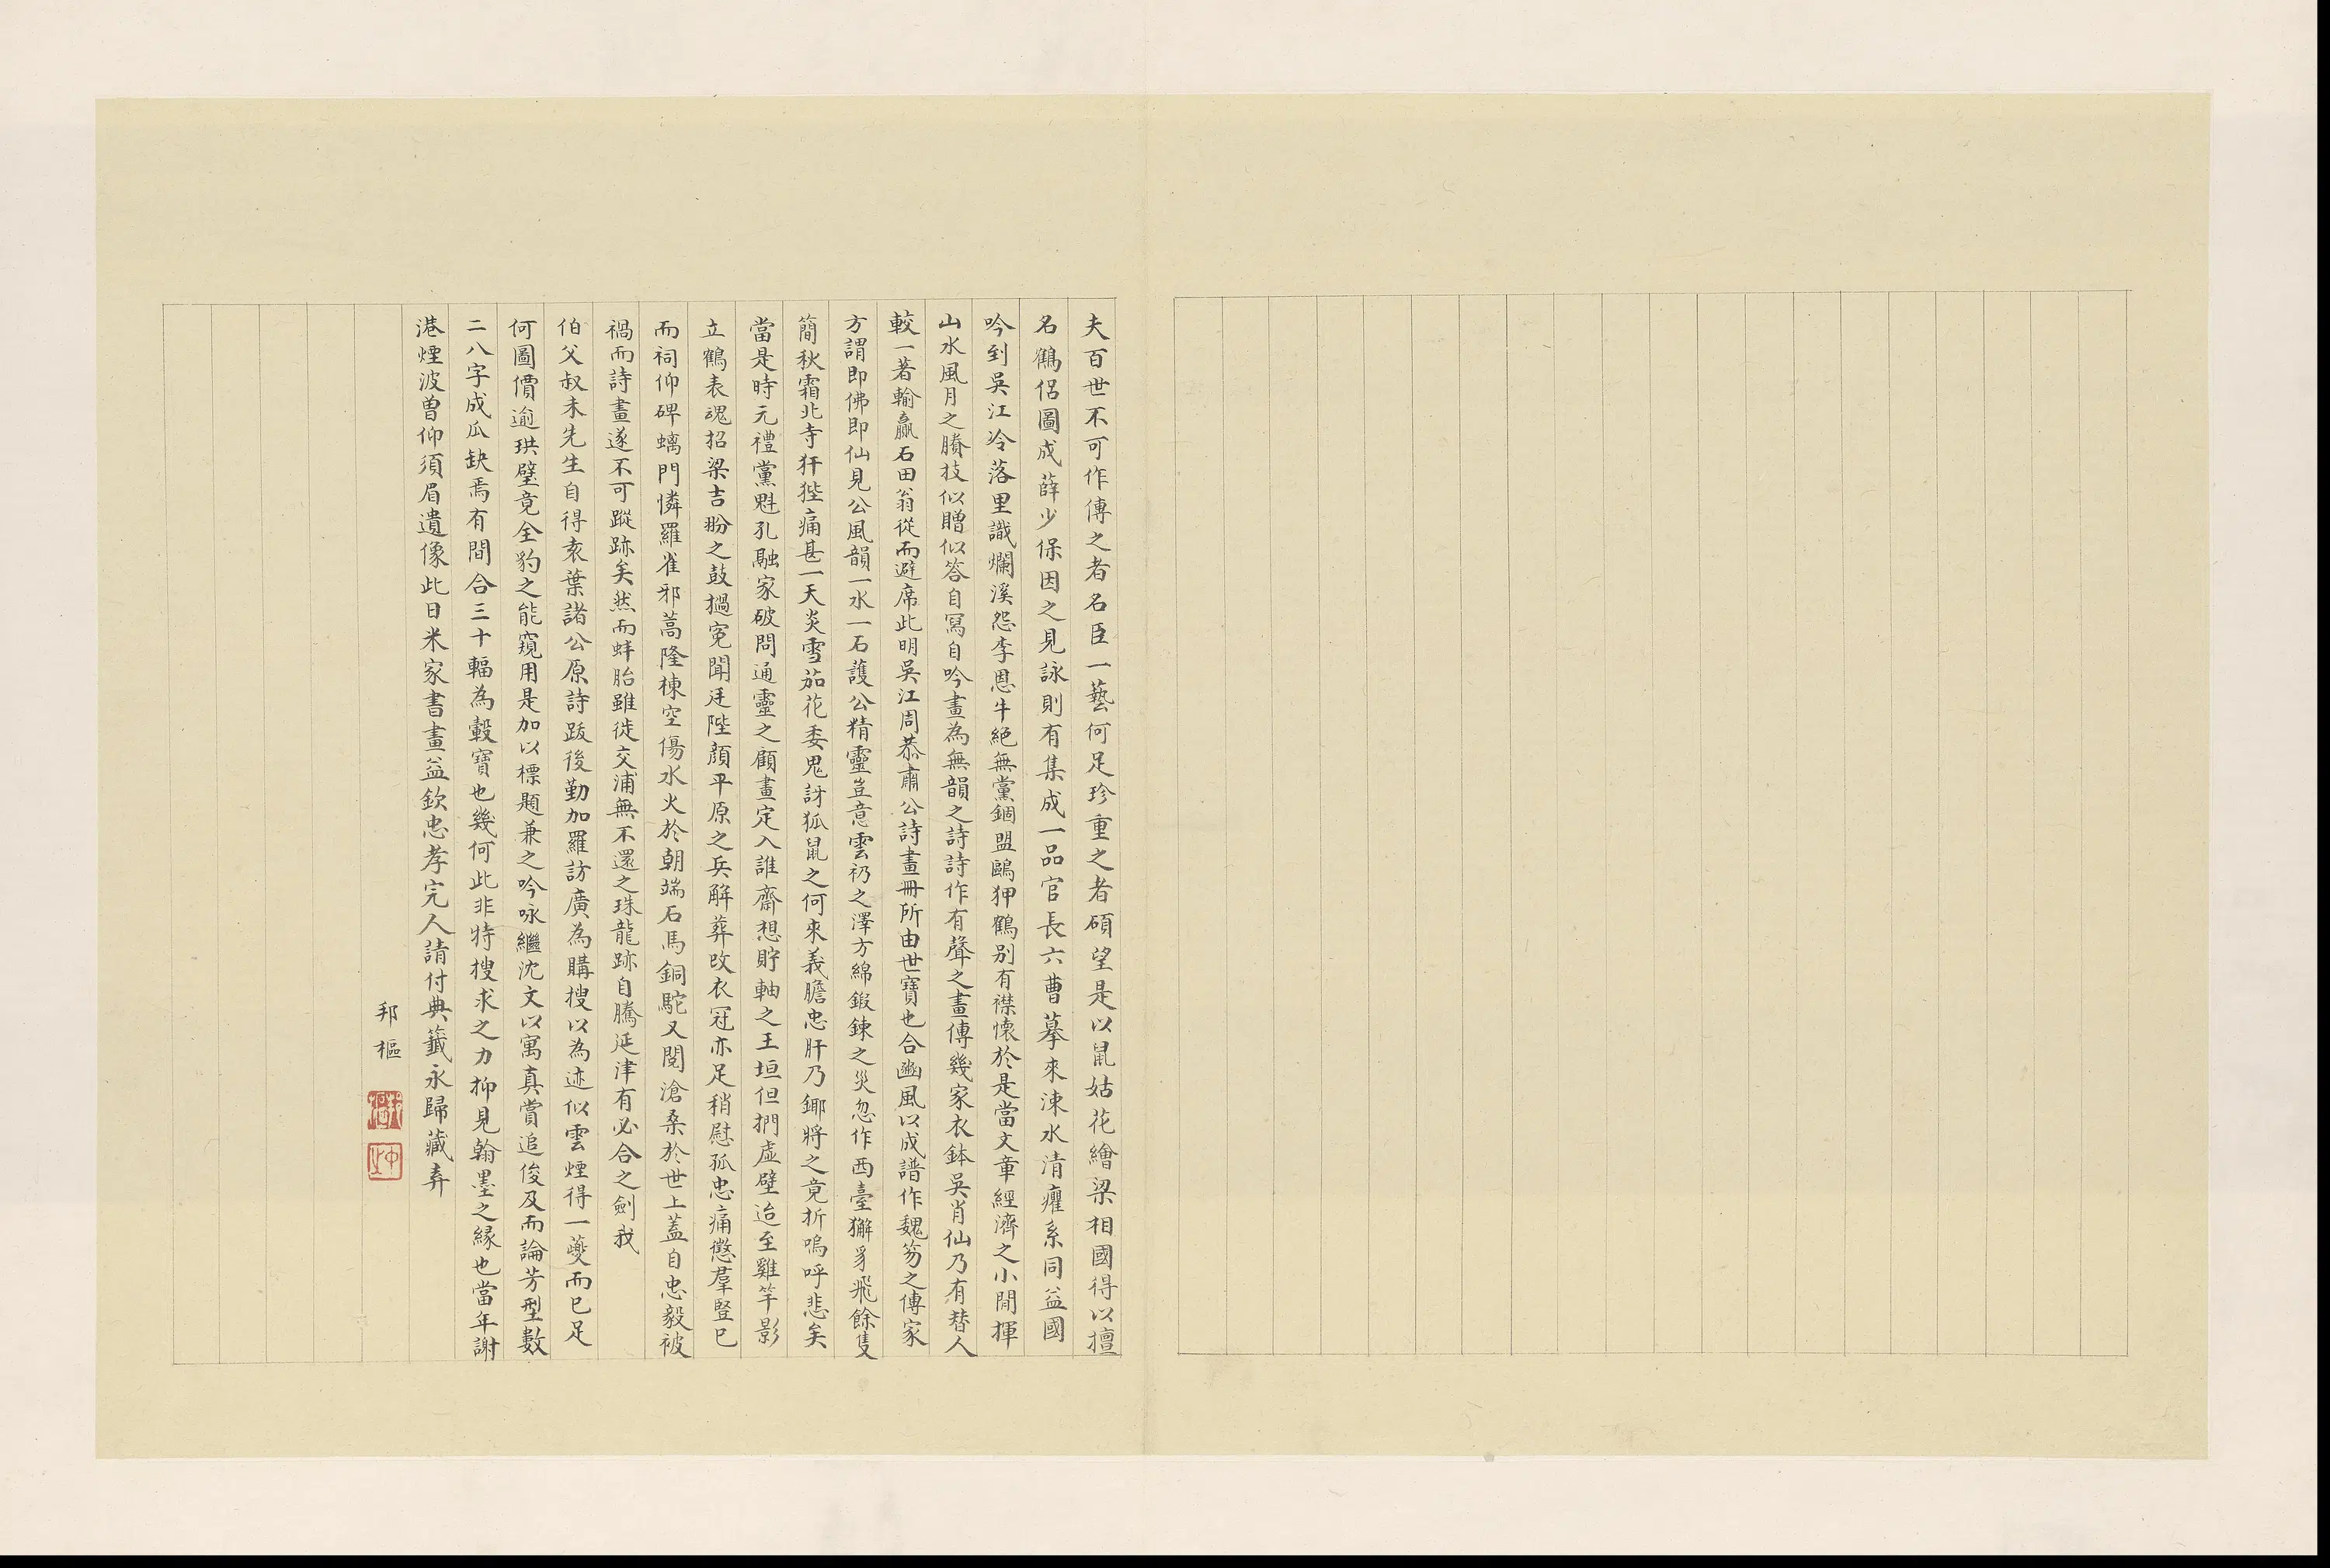 夫百世不可作傳之者名臣一藝何足珍重之者碩望是以鼠姑花繪梁相國得以擅
名鶴侶圖成薛少保因之見詠則有集成一品官長六曹摹來涑水清癯系同益國
吟到吳江冷落里識爛溪怨李恩牛絕無黨錮盟鷗狎鶴別有襟懷於是當文章經濟之小閒揮
山水風月之賸技似贈似答自寫自吟畫為無韻之詩詩作有聲之畫傳幾家衣鉢吳肖仙乃有替人
較一著輸贏石田翁從而避席此明吳江周恭肅公詩畫冊所由世寶也合豳風以成譜作魏笏之傳家
方謂即佛即仙見公風韻一水一石護公精靈豈意雲礽之澤方綿鍛鍊之災忽作西臺獬豸飛餘隻
簡秋霜北寺犴狴痛甚一天炎雪茄花委鬼訝狐鼠之何來義膽忠肝乃鎁將之竟折嗚呼悲矣
當是時元禮黨魁孔融家破問通靈之顧畫定入誰齋想貯軸之王垣但捫虛壁迨至雞竿影
立鶴表魂招梁吉翂之鼓撾寃聞廷陛顏平原之兵解葬攺衣冠亦足稍慰孤忠痛懲羣豎已
而祠仰碑螭門憐羅雀邪蒿隆棟空傷水火於朝端石馬銅駝又閱滄桑於世上蓋自忠毅被
禍而詩畫遂不可蹤跡矣然而蚌胎雖徙交浦無不還之珠龍跡自騰延津有必合之劍我
伯父叔未先生自得袁葉諸公原詩跋後勤加羅訪廣為購搜以為迹似雲煙得一夔而已足
何圖價逾珙璧竟全豹之能窺用是加以標題兼之吟咏繼沈文以寓真賞追俊及而論芳型數
二八字成瓜缺焉有間合三十輻為轂寶也幾何此非特搜求之力抑見翰墨之緣也當年謝
港煙波曾仰須眉遺像此日米家書畫益欽忠孝完人請付典籤永歸藏弆
邦樞